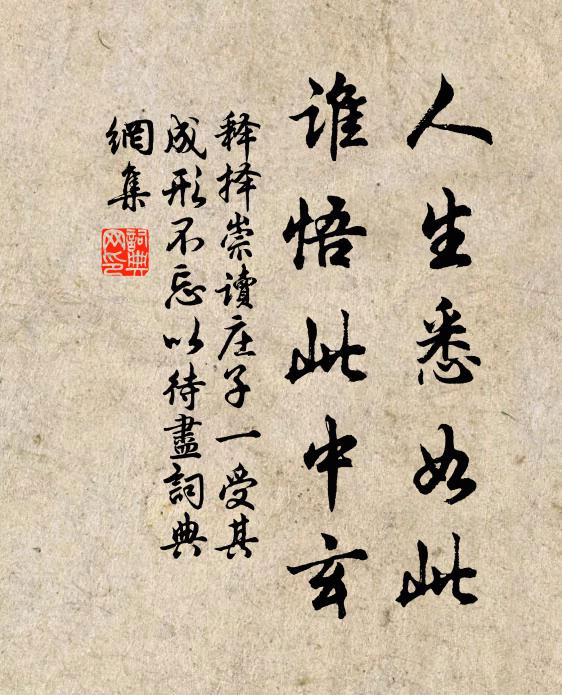 人生悉如此
谁悟此中玄
释择崇读庄子一受其
成形不忘以待盡詞典
網集
詞典
网印